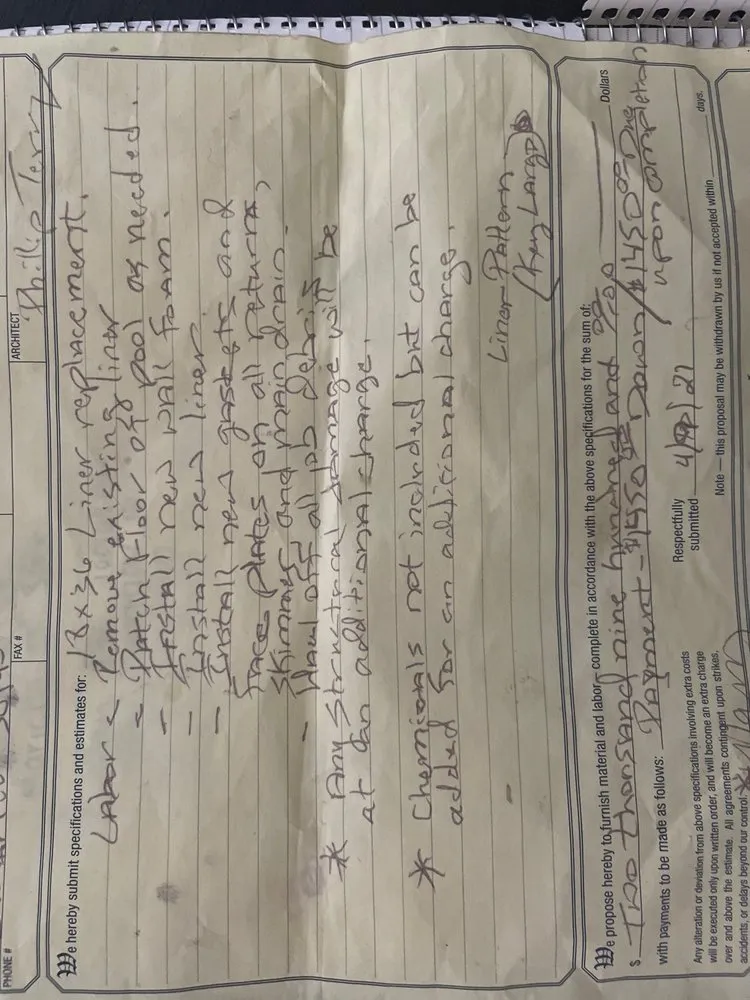 PHONE #
FAX #
ARCHITECT
Phillip Terry
We hereby submit specifications and estimates for: 18x36 Liner replacement.
Labor - Remove existing liner
- Patch floor of pool as needed.
- Install new wall foam.
- Install new liner.
- Install new gaskets and
face plates on all returns,
skimmer and main drain.
- Haul off all job debris
* Any structural damage will be
at an additional charge.
* Chemicals not included but can be
added for an additional charge.
Liner Pattern -
(Key Largo)
We propose hereby to furnish material and labor, complete in accordance with the above specifications for the sum of:
$ Two thousand nine hundred and Dollars
with payments to be made as follows: Payment - $1450 Down / $1450 Due
upon completion
Any alteration or deviation from above specifications involving extra costs
will be executed only upon written order, and will become an extra charge
over and above the estimate. All agreements contingent upon strikes,
accidents, or delays beyond our control.
Respectfully
submitted
Note — this proposal may be withdrawn by us if not accepted within days.